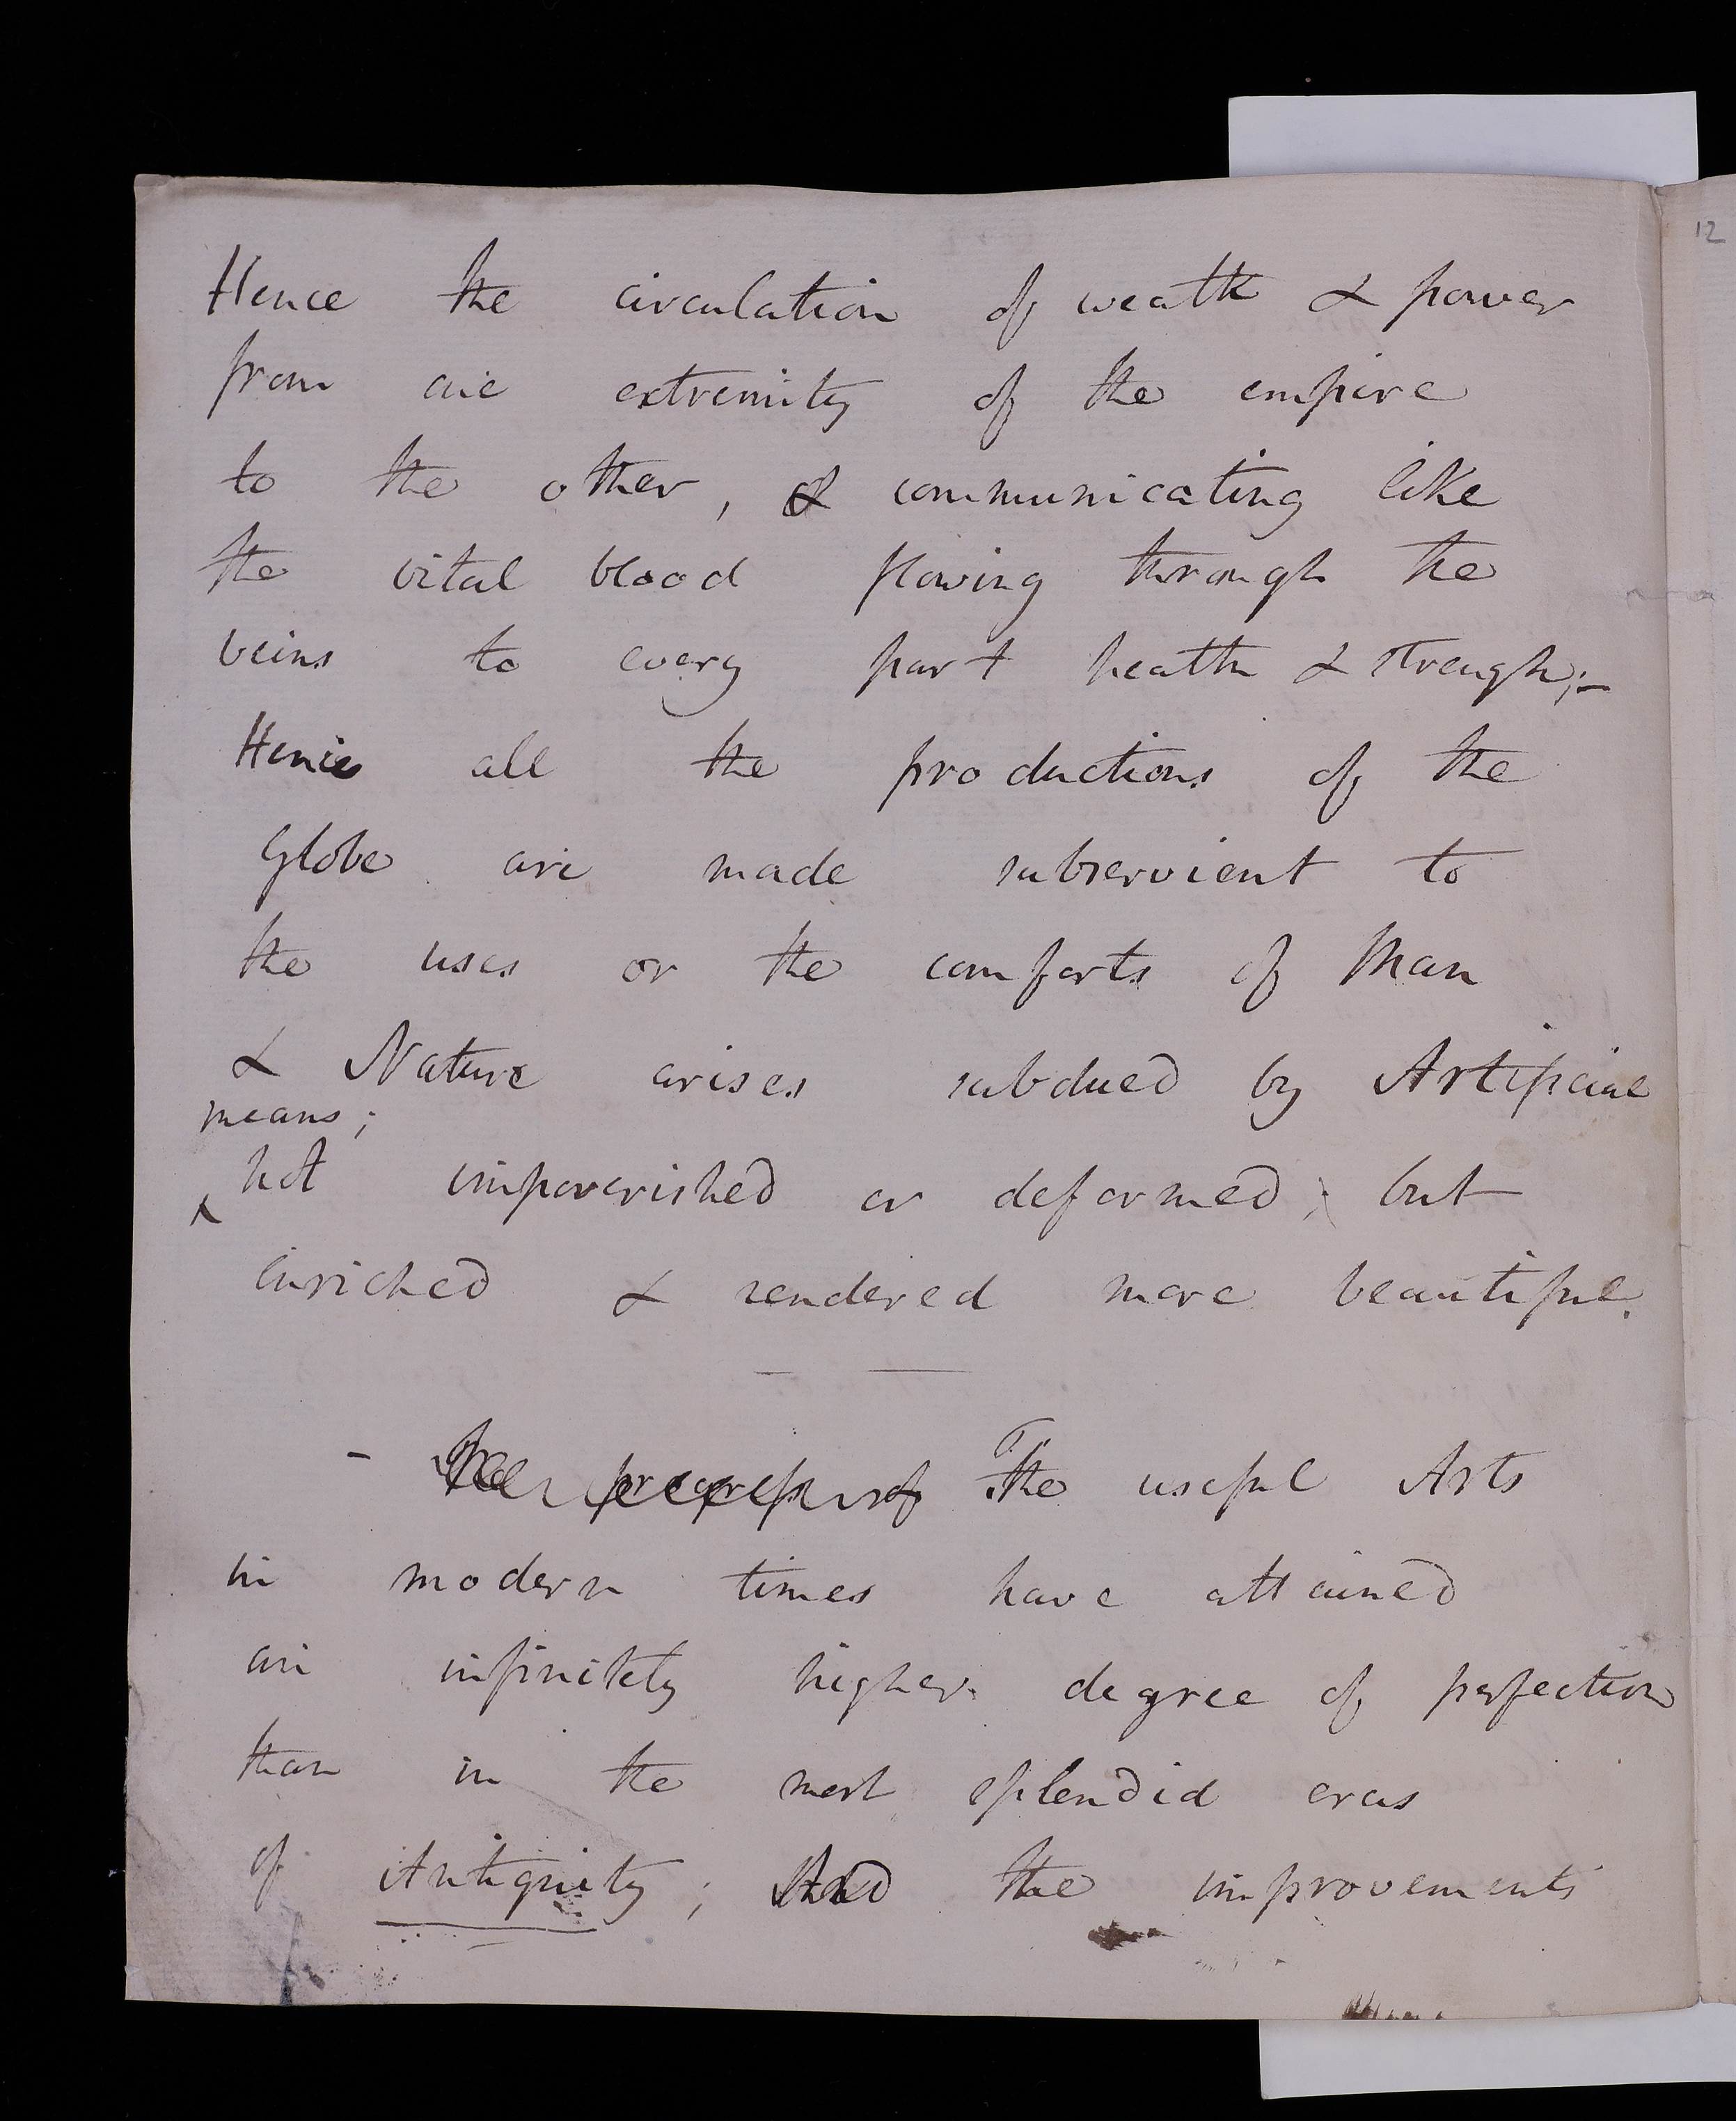 12
Hence the circulation of weath & power
from one extremity of the empire
to the other, & communicating like
the vital blood flowing through the
veins to every part heath & strengh;-
Hence all the productions of the
Globe are made subservient to
the uses or the comforts of Man
& Nature arises subdued by Artificial
means;
not impoverished or deformed; but
enriched & rendered more beautiful.
- The progress of The useful Arts
in modern times have attained
an infinitely higher degree of perfection
than in the most splendid eras
of Antiquity; And the improvements